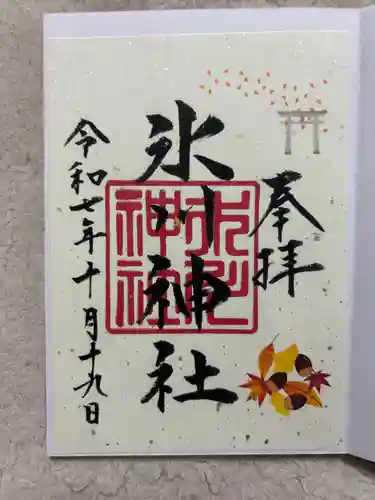 奉拝
氷川神社
氷川
神社
令和七年十月十九日